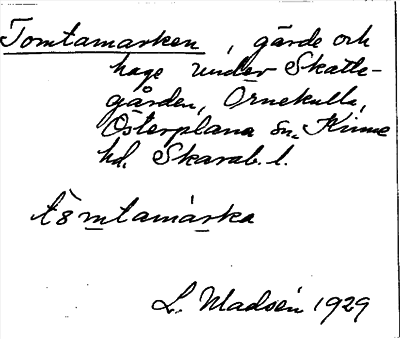 Tomtamarken, gärde och
hage under Skatte-
gården, Örnekulla,
Österplana sn. Kinne
hd. Skarab. l.
tòmtamárka
L. Madsén 1929